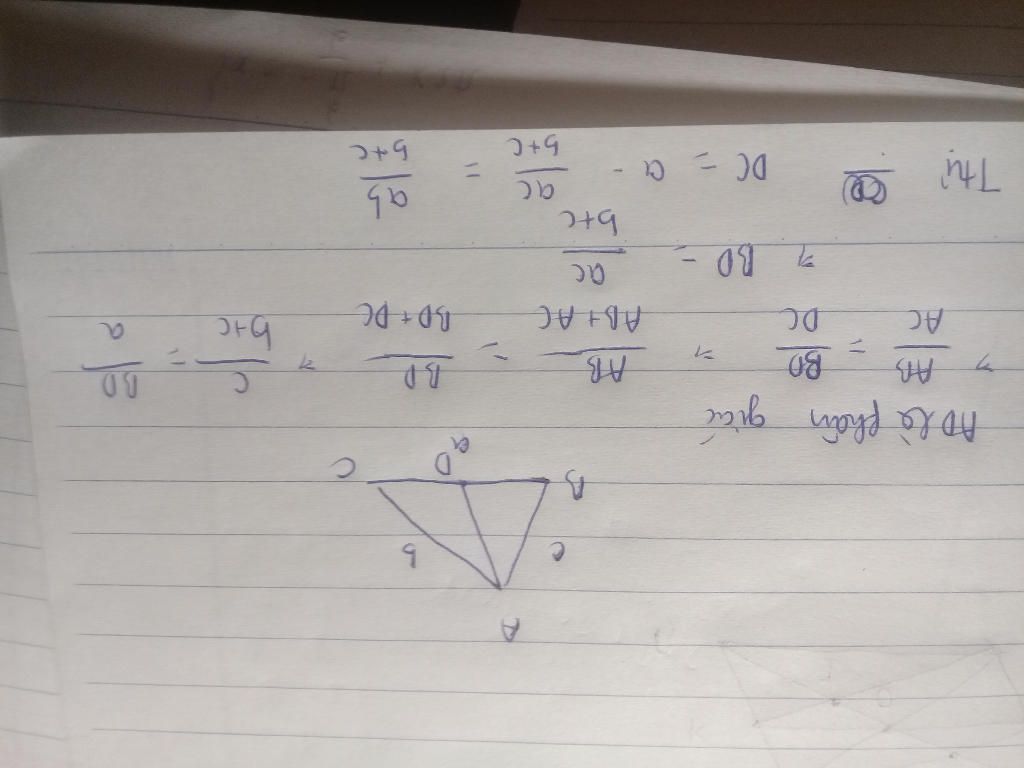 A
c b
B D C
a
AD là phân giác
⇒ AB/AC = BD/DC ⇒ AB/(AB+AC) = BD/(BD+DC) ⇒ c/(b+c) = BD/a
⇒ BD = ac/(b+c)
DC = a - ac/(b+c) = ab/(b+c)